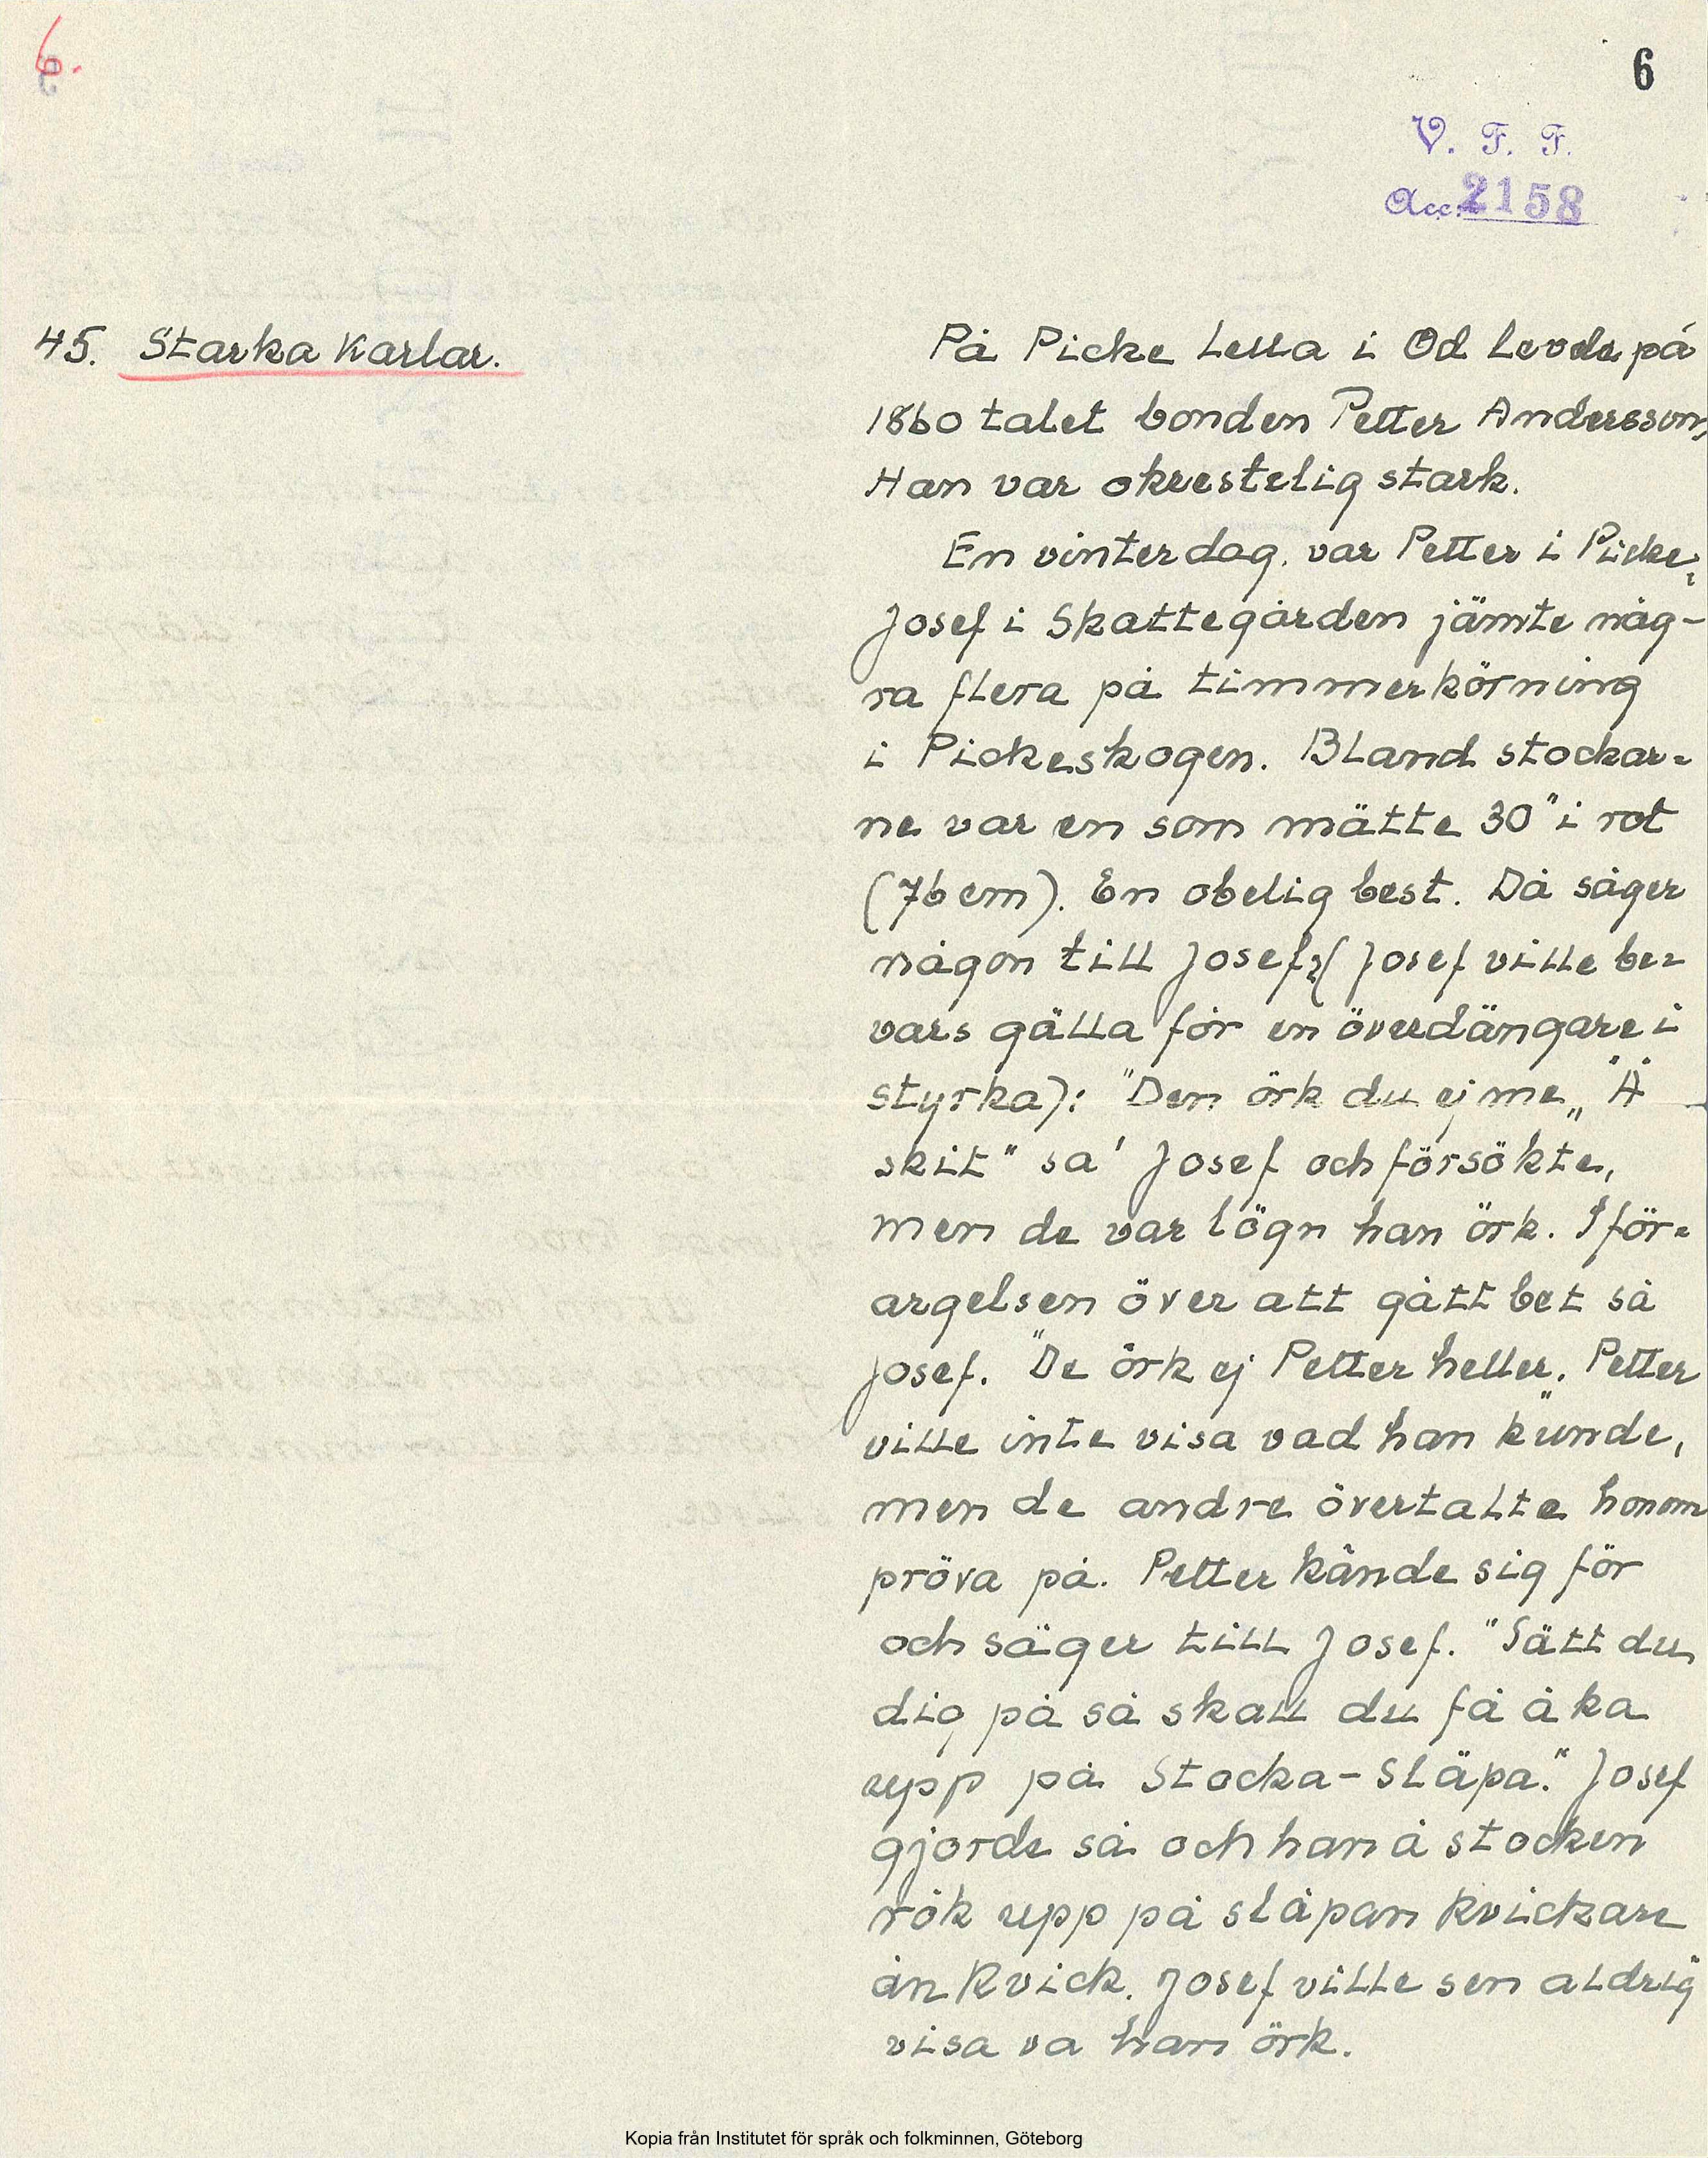 6.
6
V. F. F.
Acc. 2158
45. Starka Karlar.
På Picke Lella i Od levde på
1860 talet bonden Petter Andersson,
Han var okrestelig stark.
En vinterdag. var Petter i Picke,
Josef i Skattegården jämte någ-
ra flera på timmerkörning
i Pickeskogen. Bland stockar-
ne var en som mätte 30" i rot
(76 cm). En obelig best. Då säger
någon till Josef, (Josef ville be-
vars gälla för en överdängare i
styrka): "Den örk du ej me„ "Å
skit" sa' Josef och försökte,
men de var lögn han örk. I för-
argelsen över att gått bet så
Josef. "De örk ej Petter heller." Petter
ville inte visa vad han kunde,
men de andre övertalte honom
pröva på. Petter kände sig för
och säger till Josef. "Sätt du
dig på så skall du få åka
upp på Stocka-släpa." Josef
gjorde så och han å stocken
rök upp på släpan kvickare
än kvick. Josef ville sen aldrig
visa va han örk.
Kopia från Institutet för språk och folkminnen, Göteborg